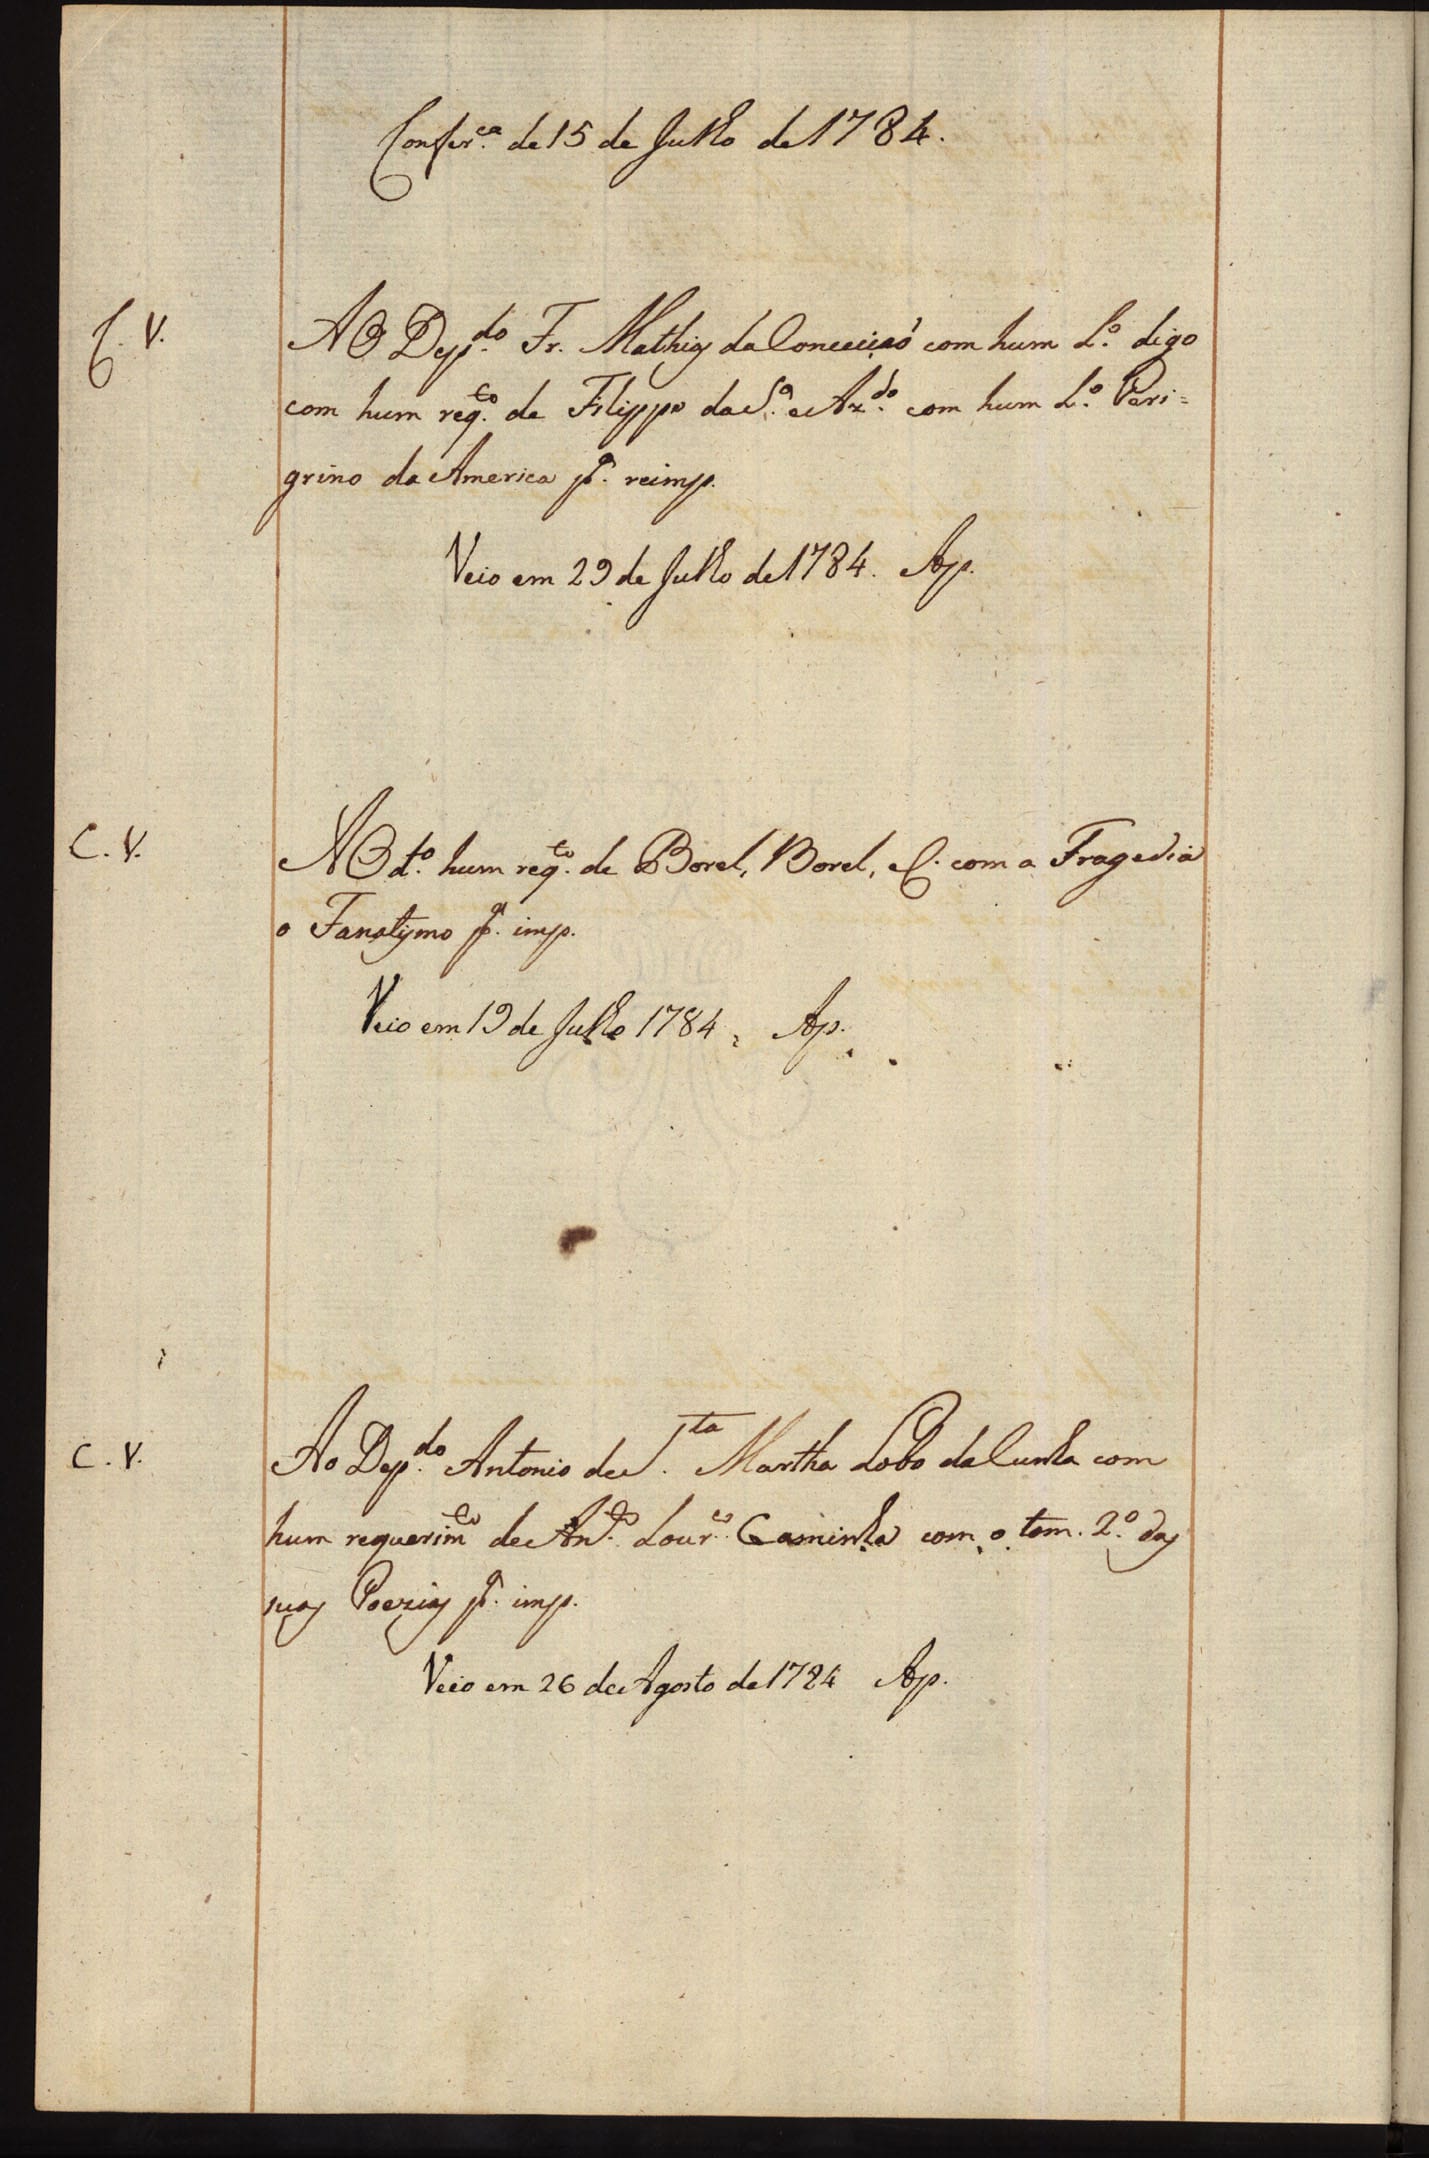 Confer.ca de 15 de Julho de 1784.
C. V.
AO Dep.do Fr. Mathias da Conceiçaó com hum L.o digo
com hum req.to de Filippe da S.a e Az.do com hum L.o Peri=
grino da America p.a reimp.
Veio em 29 de Julho de 1784. Ap.
C. V.
AO d.o hum req.to de Borel, Borel, e C. com a Tragedia
o Fanatismo p.a imp.
Veio em 19 de Julho 1784, Ap.
C. V.
Ao Dep.do Antonio de S.ta Martha Lobo da Cunha com
hum requerim.to de An.to Lour.ço Caminha com o tom. 2.o das
suas Poezias p.a imp.
Veio em 26 de Agosto de 1784 Ap.